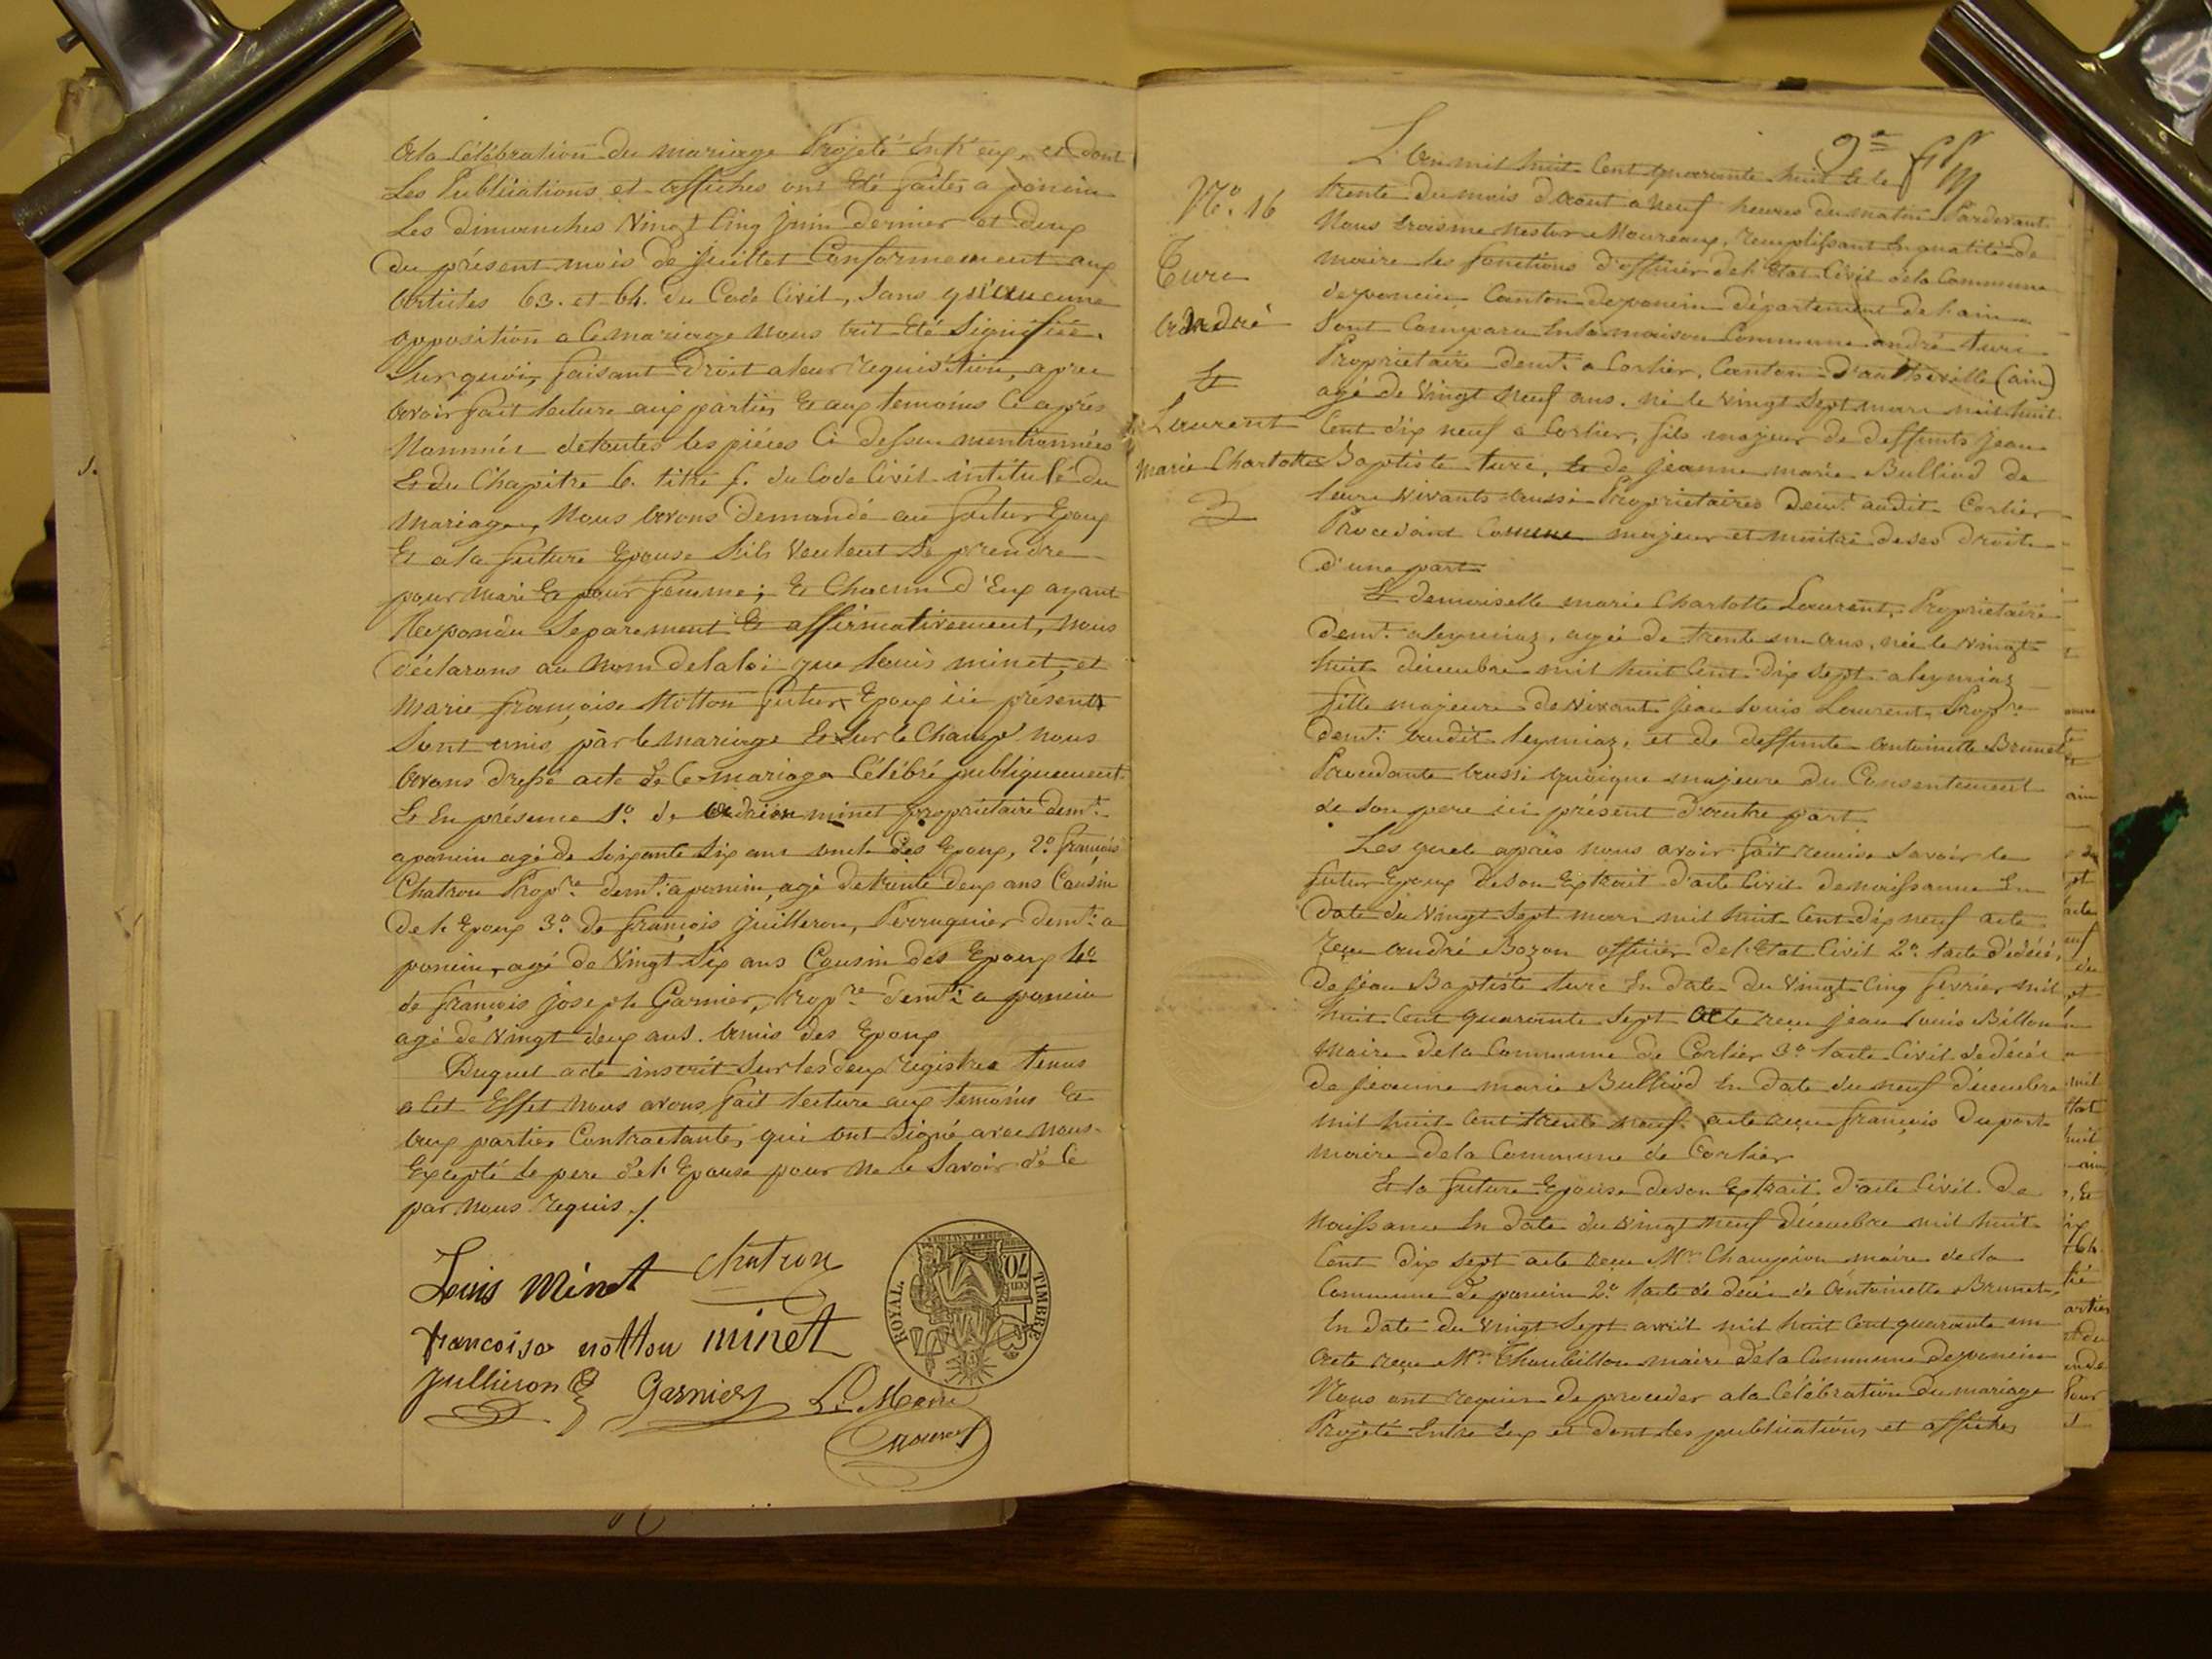 a la Célébration du mariage Projeté Entr'eux, et dont
Les Publications et affiches ont Eté faites a poncin
Les dimanches Vingt Cinq juin dernier et deux
du présent mois de juillet Conformement aux
articles 63. et 64. du Code Civil, Sans qu'aucune
opposition a Ce mariage Nous ait Eté Signifiée.
Sur quoi, faisant Droit a leur requisition, apres
avoir fait lecture aux parties Et aux temoins Ci après
Nommés de toutes les piéces Ci dessu mentionnées
Et du Chapitre 6. titre 5. du Code Civil intitulé du
Mariage, Nous avons Demandé au futur Epoux
Et a la future Epouse S'ils Veulent Se prendre
pour Mari Et pour femme; Et Chacun d'Eux ayant
Repondu Separement Et affirmativement, Nous
déclarons au Nom de la loi que Louis minet, et
Marie françoise Notton futurs Epoux ici présents
Sont unis par le mariage Et Sur le Champ nous
avons dressé acte de Ce mariage Célébré publiquement
Et En présence 1º. de minet propriétaire demt.
a poncin agé de Soixante Six ans oncle des Epoux, 2º. françois
Chatron Propre. demt. a poncin, agé de trente deux ans Cousin
de l'Epoux 3º. de françois juilleron, Perruquier demt. a
poncin, agé de Vingt Six ans Cousin des Epoux 4º.
de françois joseph Garnier, Propre demt. a poncin
agé de Vingt deux ans. amis des Epoux
Duquel acte inscrit Sur les deux registres tenus
a Cet Effet Nous avons fait lecture aux temoins Et
aux parties Contractantes, qui ont Signé avec Nous.
Excepté le pere de l'Epouse pour Ne le Savoir de Ce
par Nous requis./.
Louis Minet chatron
francoise notton minet
Jullieron Garnier Le Maire
ROYAL TIMBRE
70 CENT
Nº. 16
Turc
andré
Et
Laurent
Marie Charlotte
9e
L'an mil huit Cent quarante huit Et le
trente du mois d'aout a Neuf heures du matin Pardevant
Nous Nestor Moureaux, remplissant En qualité de
maire les fonctions d'officier de l'Etat Civil de la Commune
de poncin Canton de poncin département de l'ain
Sont Comparu En la maison Commune andré turc
Propriétaire demt. a Corlier, Canton d'hauteville (ain)
agé de Vingt Neuf ans. né le Vingt Sept mars mil huit
Cent dix neuf a Corlier, fils majeur de deffunts jean
Baptiste turc, Et de jeanne marie Bulliod de
leurs Vivants aussi Propriétaires Demt. audit Corlier
Procedant Comme majeur et maitre de ses Droits
d'une part
Et demoiselle marie Charlotte Laurent, Propriétaire
demt. a leymiaz, agée de trente un ans, née le Vingt
huit décembre mil huit Cent dix sept a leymiaz
fille majeure de Vivant jean louis Laurent, Propre
demt. audit leymiaz, et de deffunte antoinette Brunet
Procedante aussi quoique majeure du Consentement
de Son pere ici présent d'autre part
Les quels après nous avoir fait remise Savoir le
futur Epoux de Son Extrait d'acte Civil de naissance En
date du Vingt Sept mars mil huit Cent dix neuf acte
reçu andré Bozon officier de l'Etat Civil 2º. l'acte de décés,
de jean Baptiste turc En date du Vingt Cinq fevrier mil
huit Cent quarante Sept acte reçu jean louis Billon
Maire de la Commune de Corlier 3º. l'acte Civil de décés
de jeanne marie Bulliod En date du neuf décembre
mil huit Cent trente neuf. acte reçu françois Dupont
maire de la Commune de Corlier
Et la future Epouse de Son Extrait d'acte Civil de
Naissance En date du Vingt neuf décembre mil huit
Cent dix Sept acte reçu Mr. Champion maire de la
Commune de poncin 2º. l'acte de décès de antoinette Brunet,
En date du Vingt Sept avril mil huit Cent quarante un
acte reçu Mr. maire de la Commune de poncin
Nous ont requis de proceder a la Célébration du mariage
Projeté Entre Eux et dont les publications et affiches